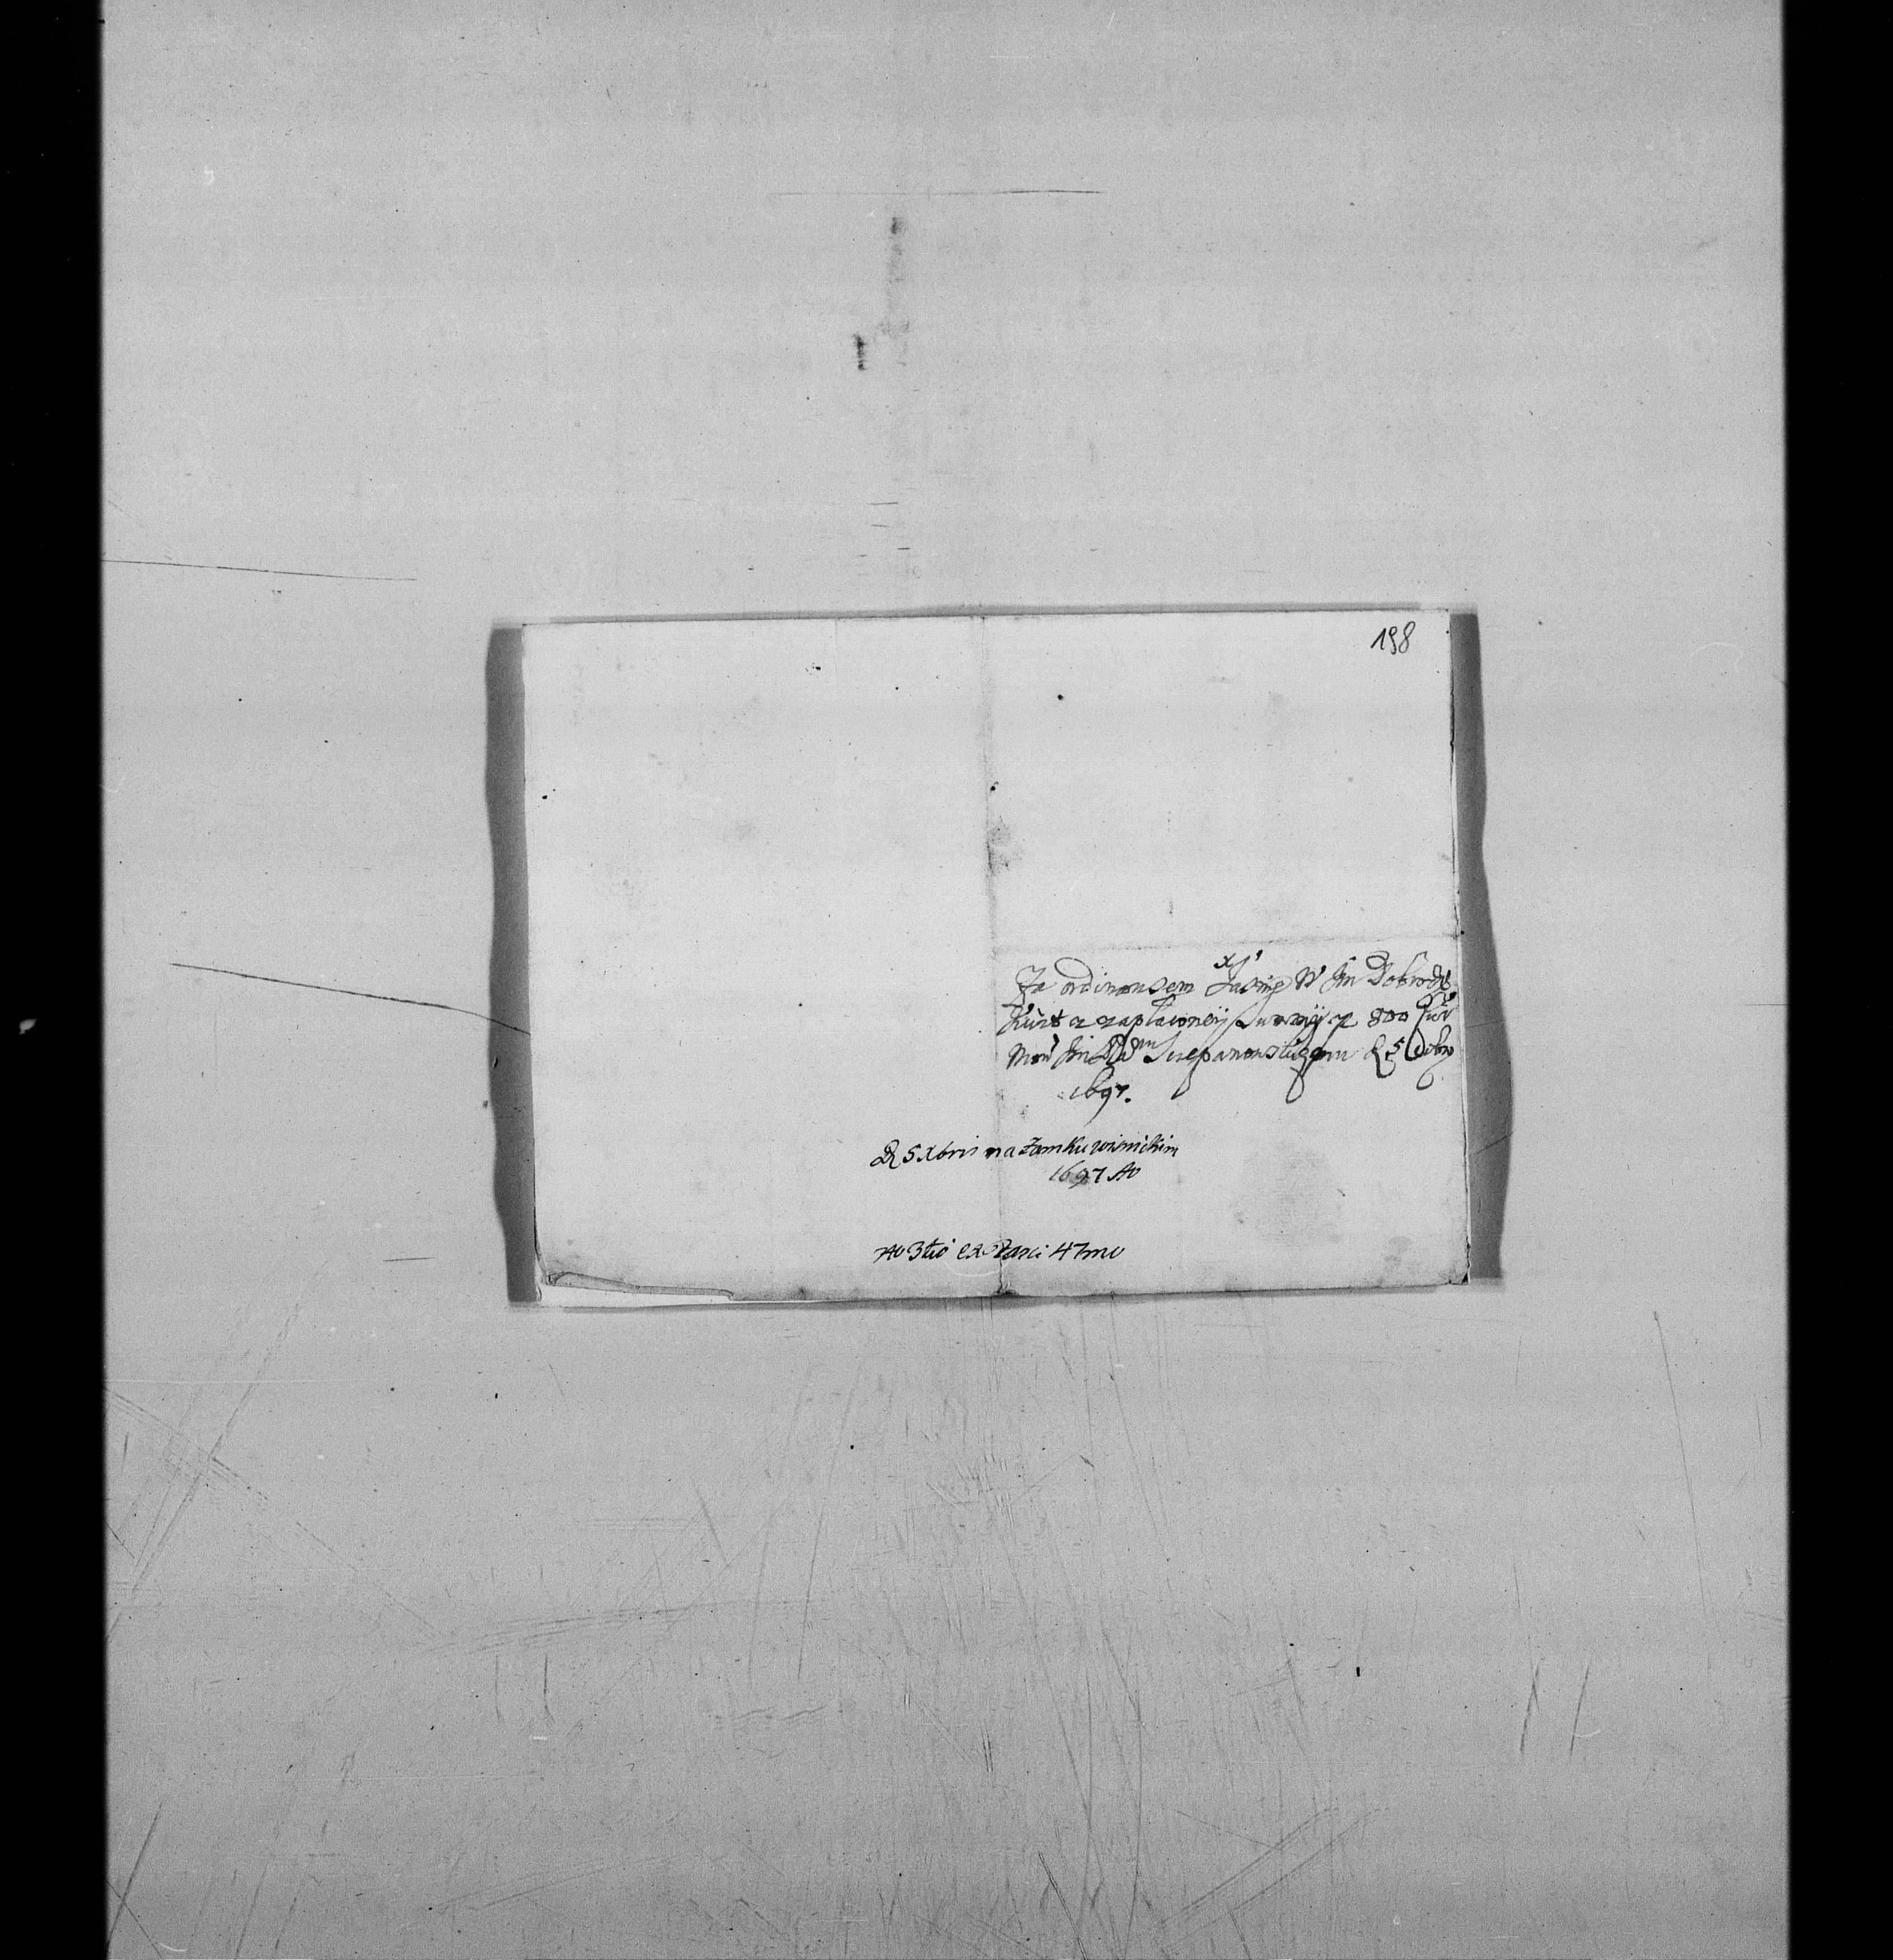 198
Za ordinansem Jasnie W Jm Dobrodz
Kwit z zapłaconeÿ Summÿ z 800
Jm Sczepanowskigemu D 5 Xbr
1697.
D 5 Xbris na Zamku wisnickim
1697 Ao
No 3tio ex Parci 47mo